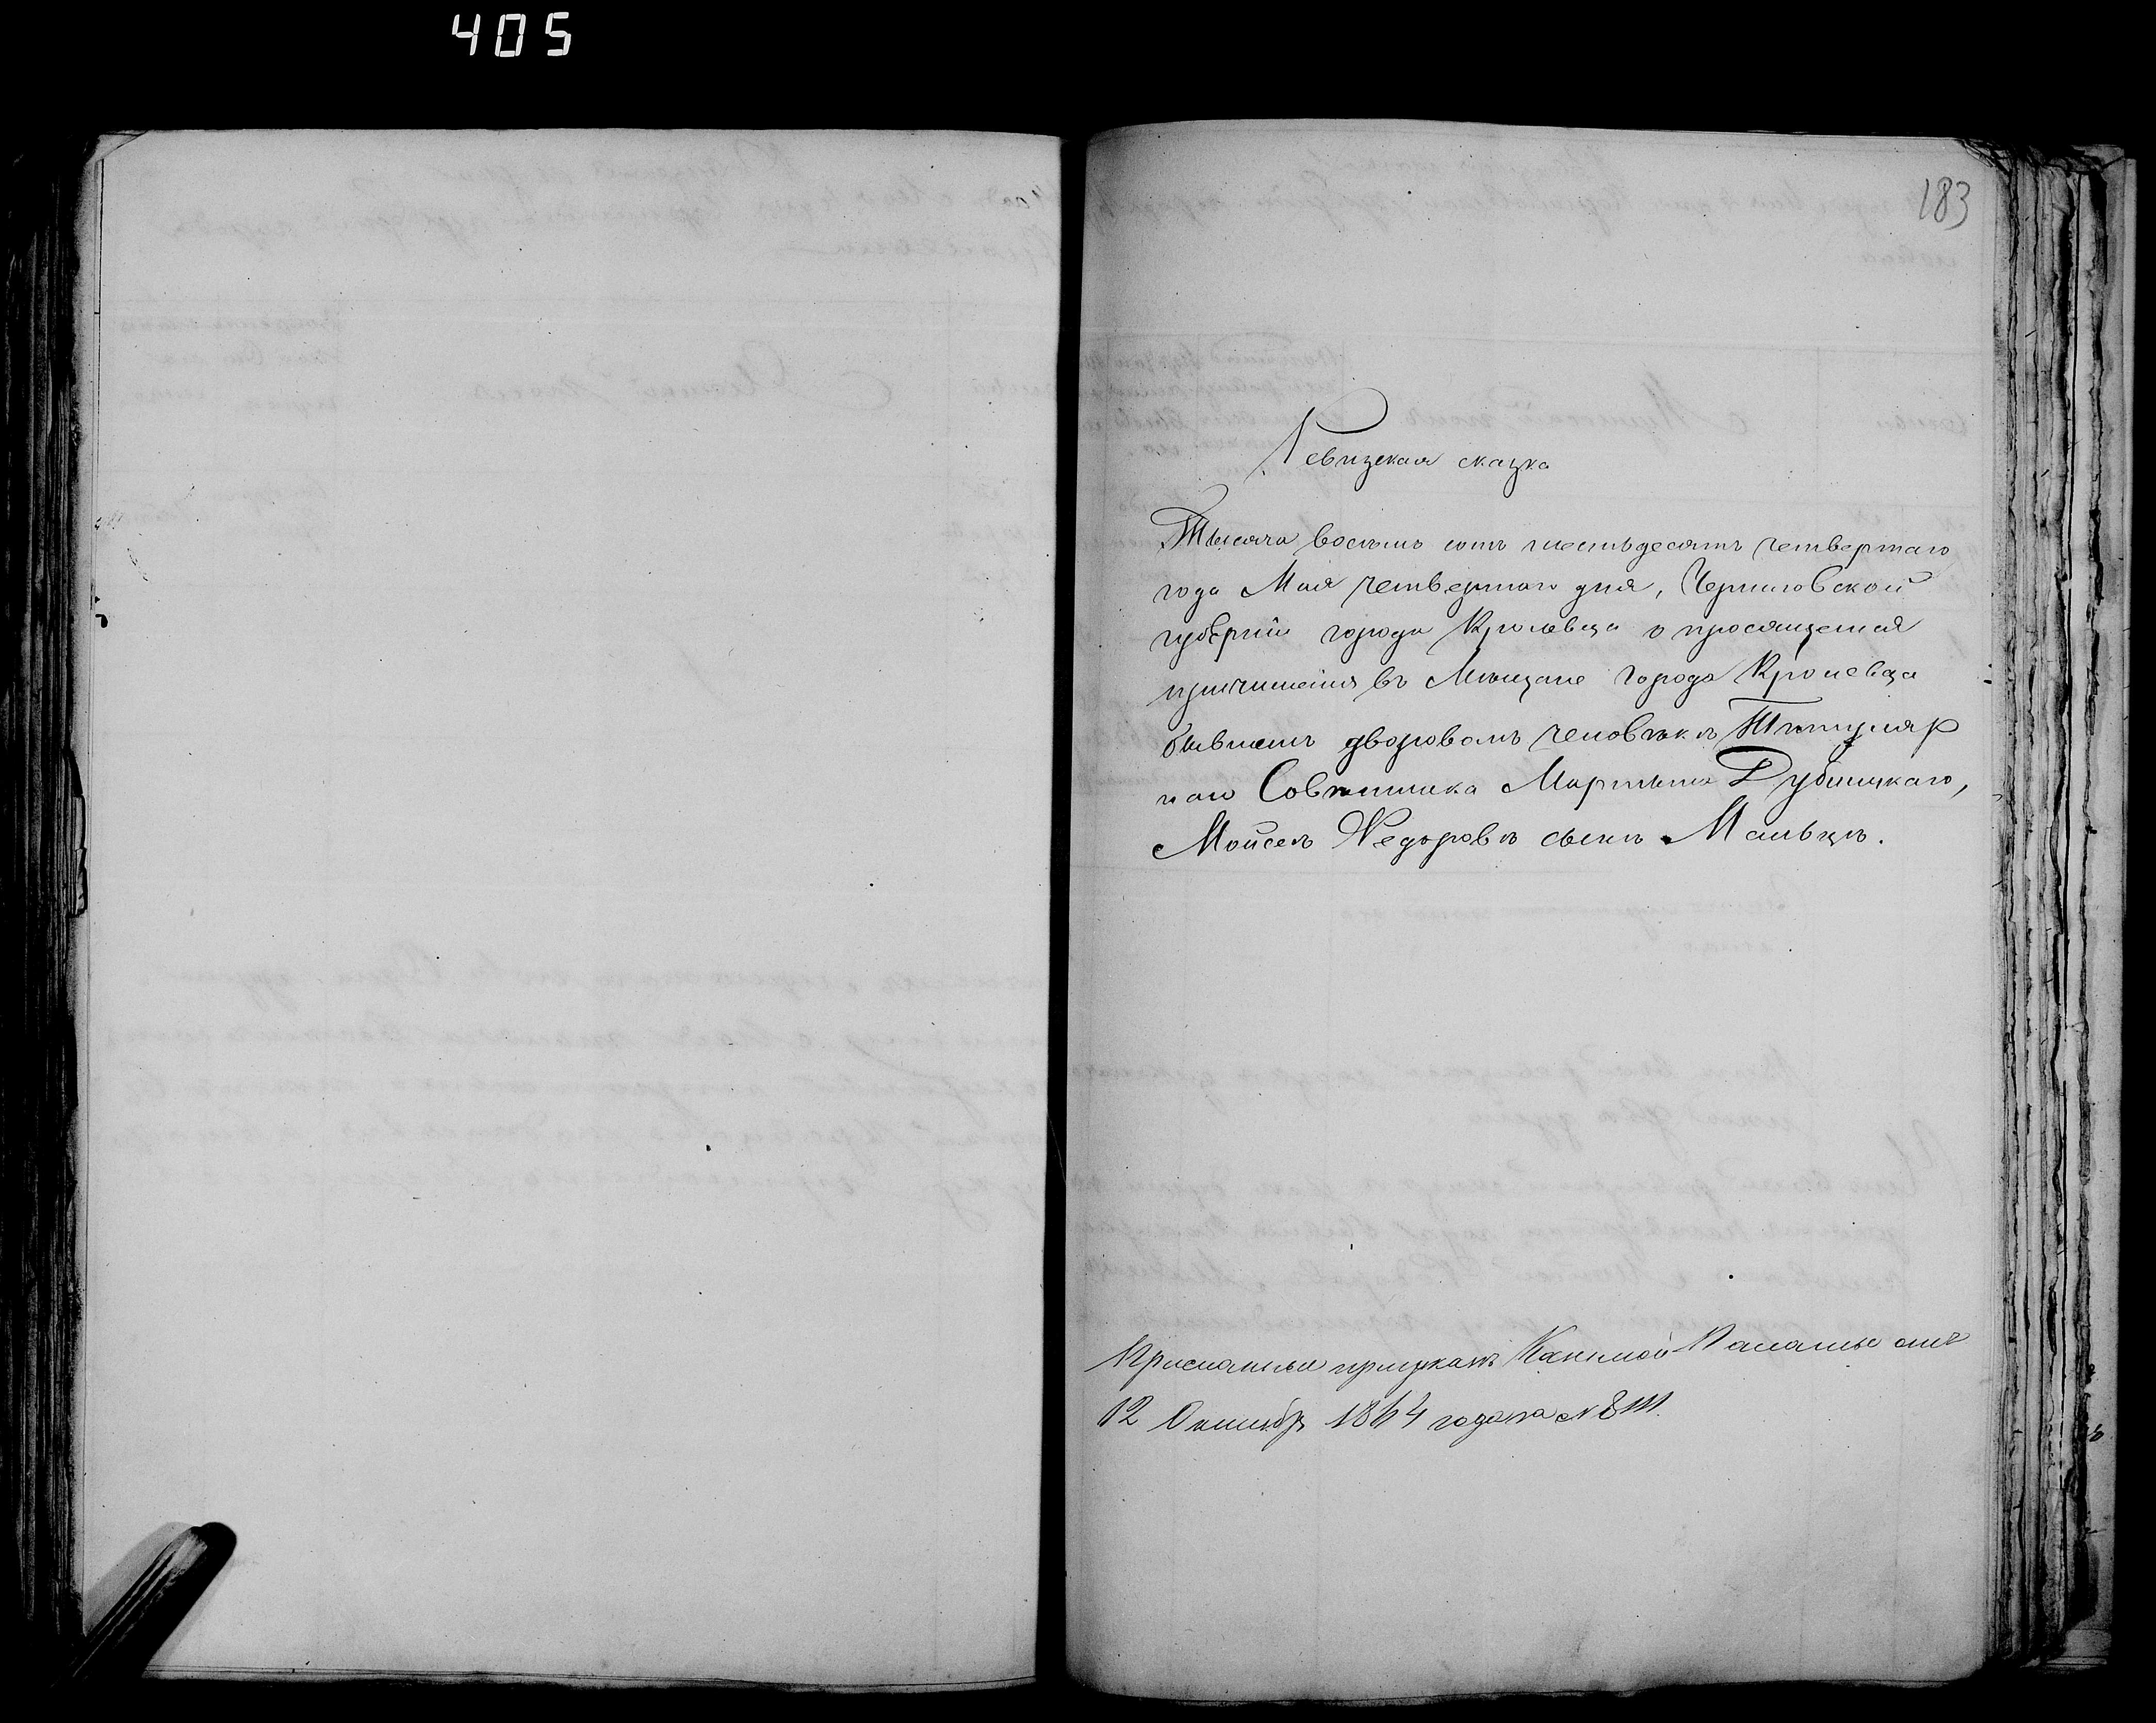 405
183
Ревизская сказка
Тысяча восемь сотъ шестьдесятъ четвертаго
года Мая четвертаго дня, Черниговской
губерніи города Кролевца о просящемся
причисленія въ Мѣщане города Кролевца
бывшемъ дворовомъ человѣкѣ Титуляр
наго Совѣтника Мартына Дубицкаго,
Мойсеѣ Федоровѣ сынѣ Мальцѣ.
Присланные при указѣ Казенной Палаты отъ
12 Октября 1864 года за №